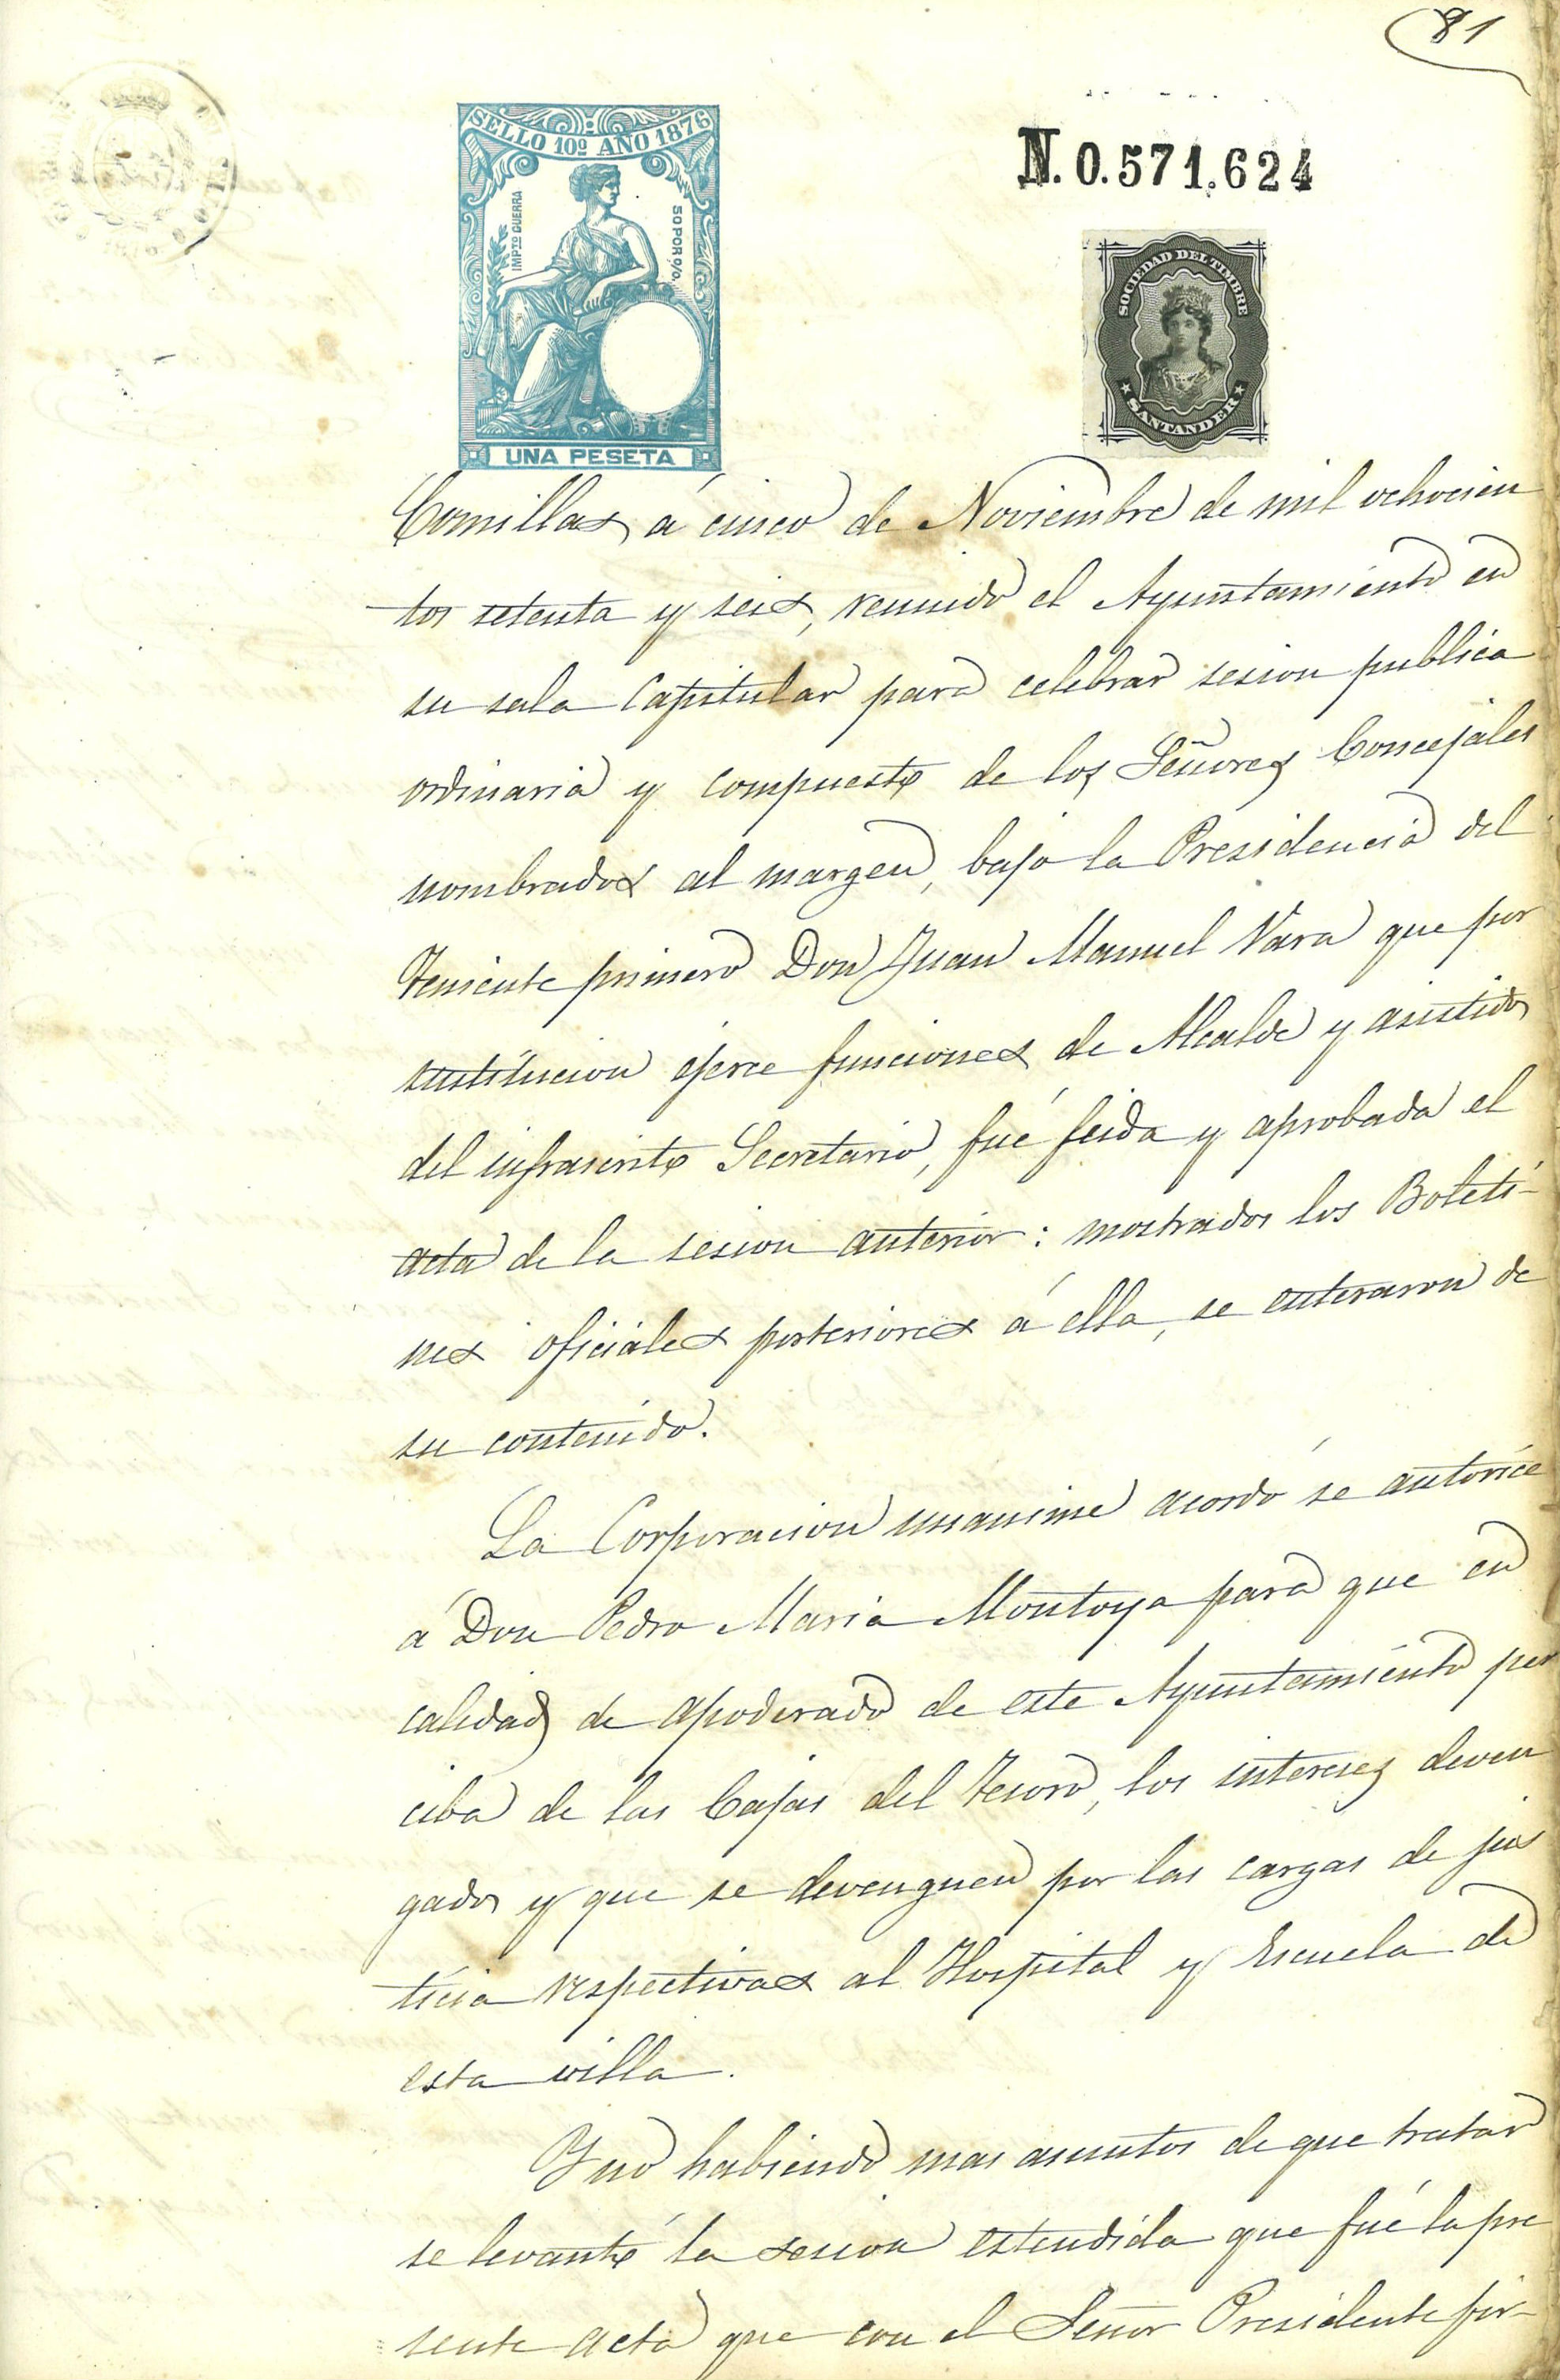 81
SELLO 10º AÑO 1876
IMPTO GUERRA
50 POR %.
UNA PESETA
N. 0.571.624
SOCIEDAD DEL TIMBRE
SANTANDER
Comillas á cinco de Noviembre de mil ochocien
tos setenta y seis, reunido el Ayuntamiento en
su sala Capitular para celebrar sesion publica
ordinaria y compuesto de los Señores Concejales
nombrados al margen, bajo la Presidencia del
Teniente primero Don Juan Manuel Vara que por
sustitucion ejerce funciones de Alcalde y asistidos
del infrascrito Secretario, fué leida y aprobada el
acta de la sesion anterior: mostrados los Boleti-
nes oficiales posteriores á ella, se enteraron de
su contenido.
La Corporacion unanime acordó se autorice
á Don Pedro Maria Montoya para que en
calidad de apoderado de este Ayuntamiento per
ciba de las Cajas del Tesoro, los intereses deven
gados y que se devenguen por las cargas de jus
ticia respectivas al Hospital y Escuela de
esta villa.
Y no habiendo mas asuntos de que tratar
se levantó la sesion estendida que fué la pre
sente acta que con el Señor Presidente fir-